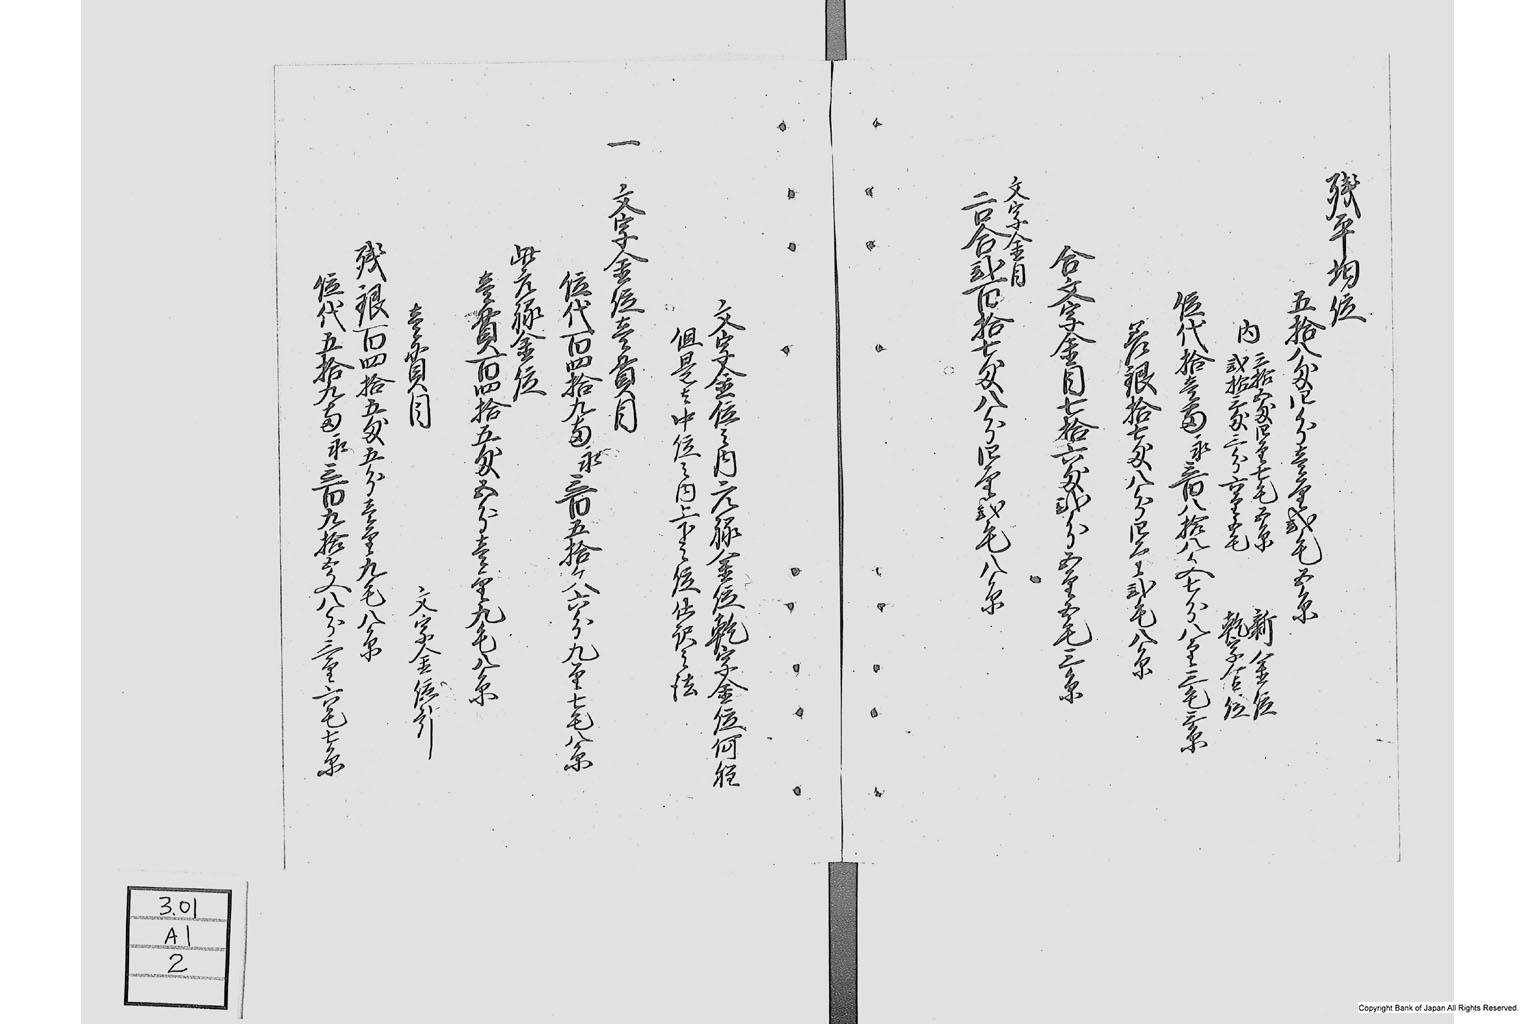 残平均位
五拾八匁四分壱厘弐毛五糸
内
三拾五匁四厘七毛五糸 新金位
弐拾三匁三分六厘五毛 乾字金位
位代拾壱両永三百八拾八文七分八厘三毛三糸
差銀拾七匁八分四厘弐毛八糸
合文字金目七拾六匁弐分五厘五毛三糸
文字金目
二口合弐百拾七匁八分四厘弐毛八糸
文字金位之内元禄金位乾字金位何程
但是者中位之内上下之位仕訳之法
一 文字金位壱貫目
位代百四拾九両永三百五拾八文六分九厘七毛八糸
此元禄金位
壱貫百四拾五匁五分壱厘九毛八糸
壱貫目 文字金位引
残銀百四拾五匁五分壱厘九毛八糸
位代五拾九両永三百九拾六文八分三厘六毛七糸
3.01
A1
2
Copyright Bank of Japan All Rights Reserved.